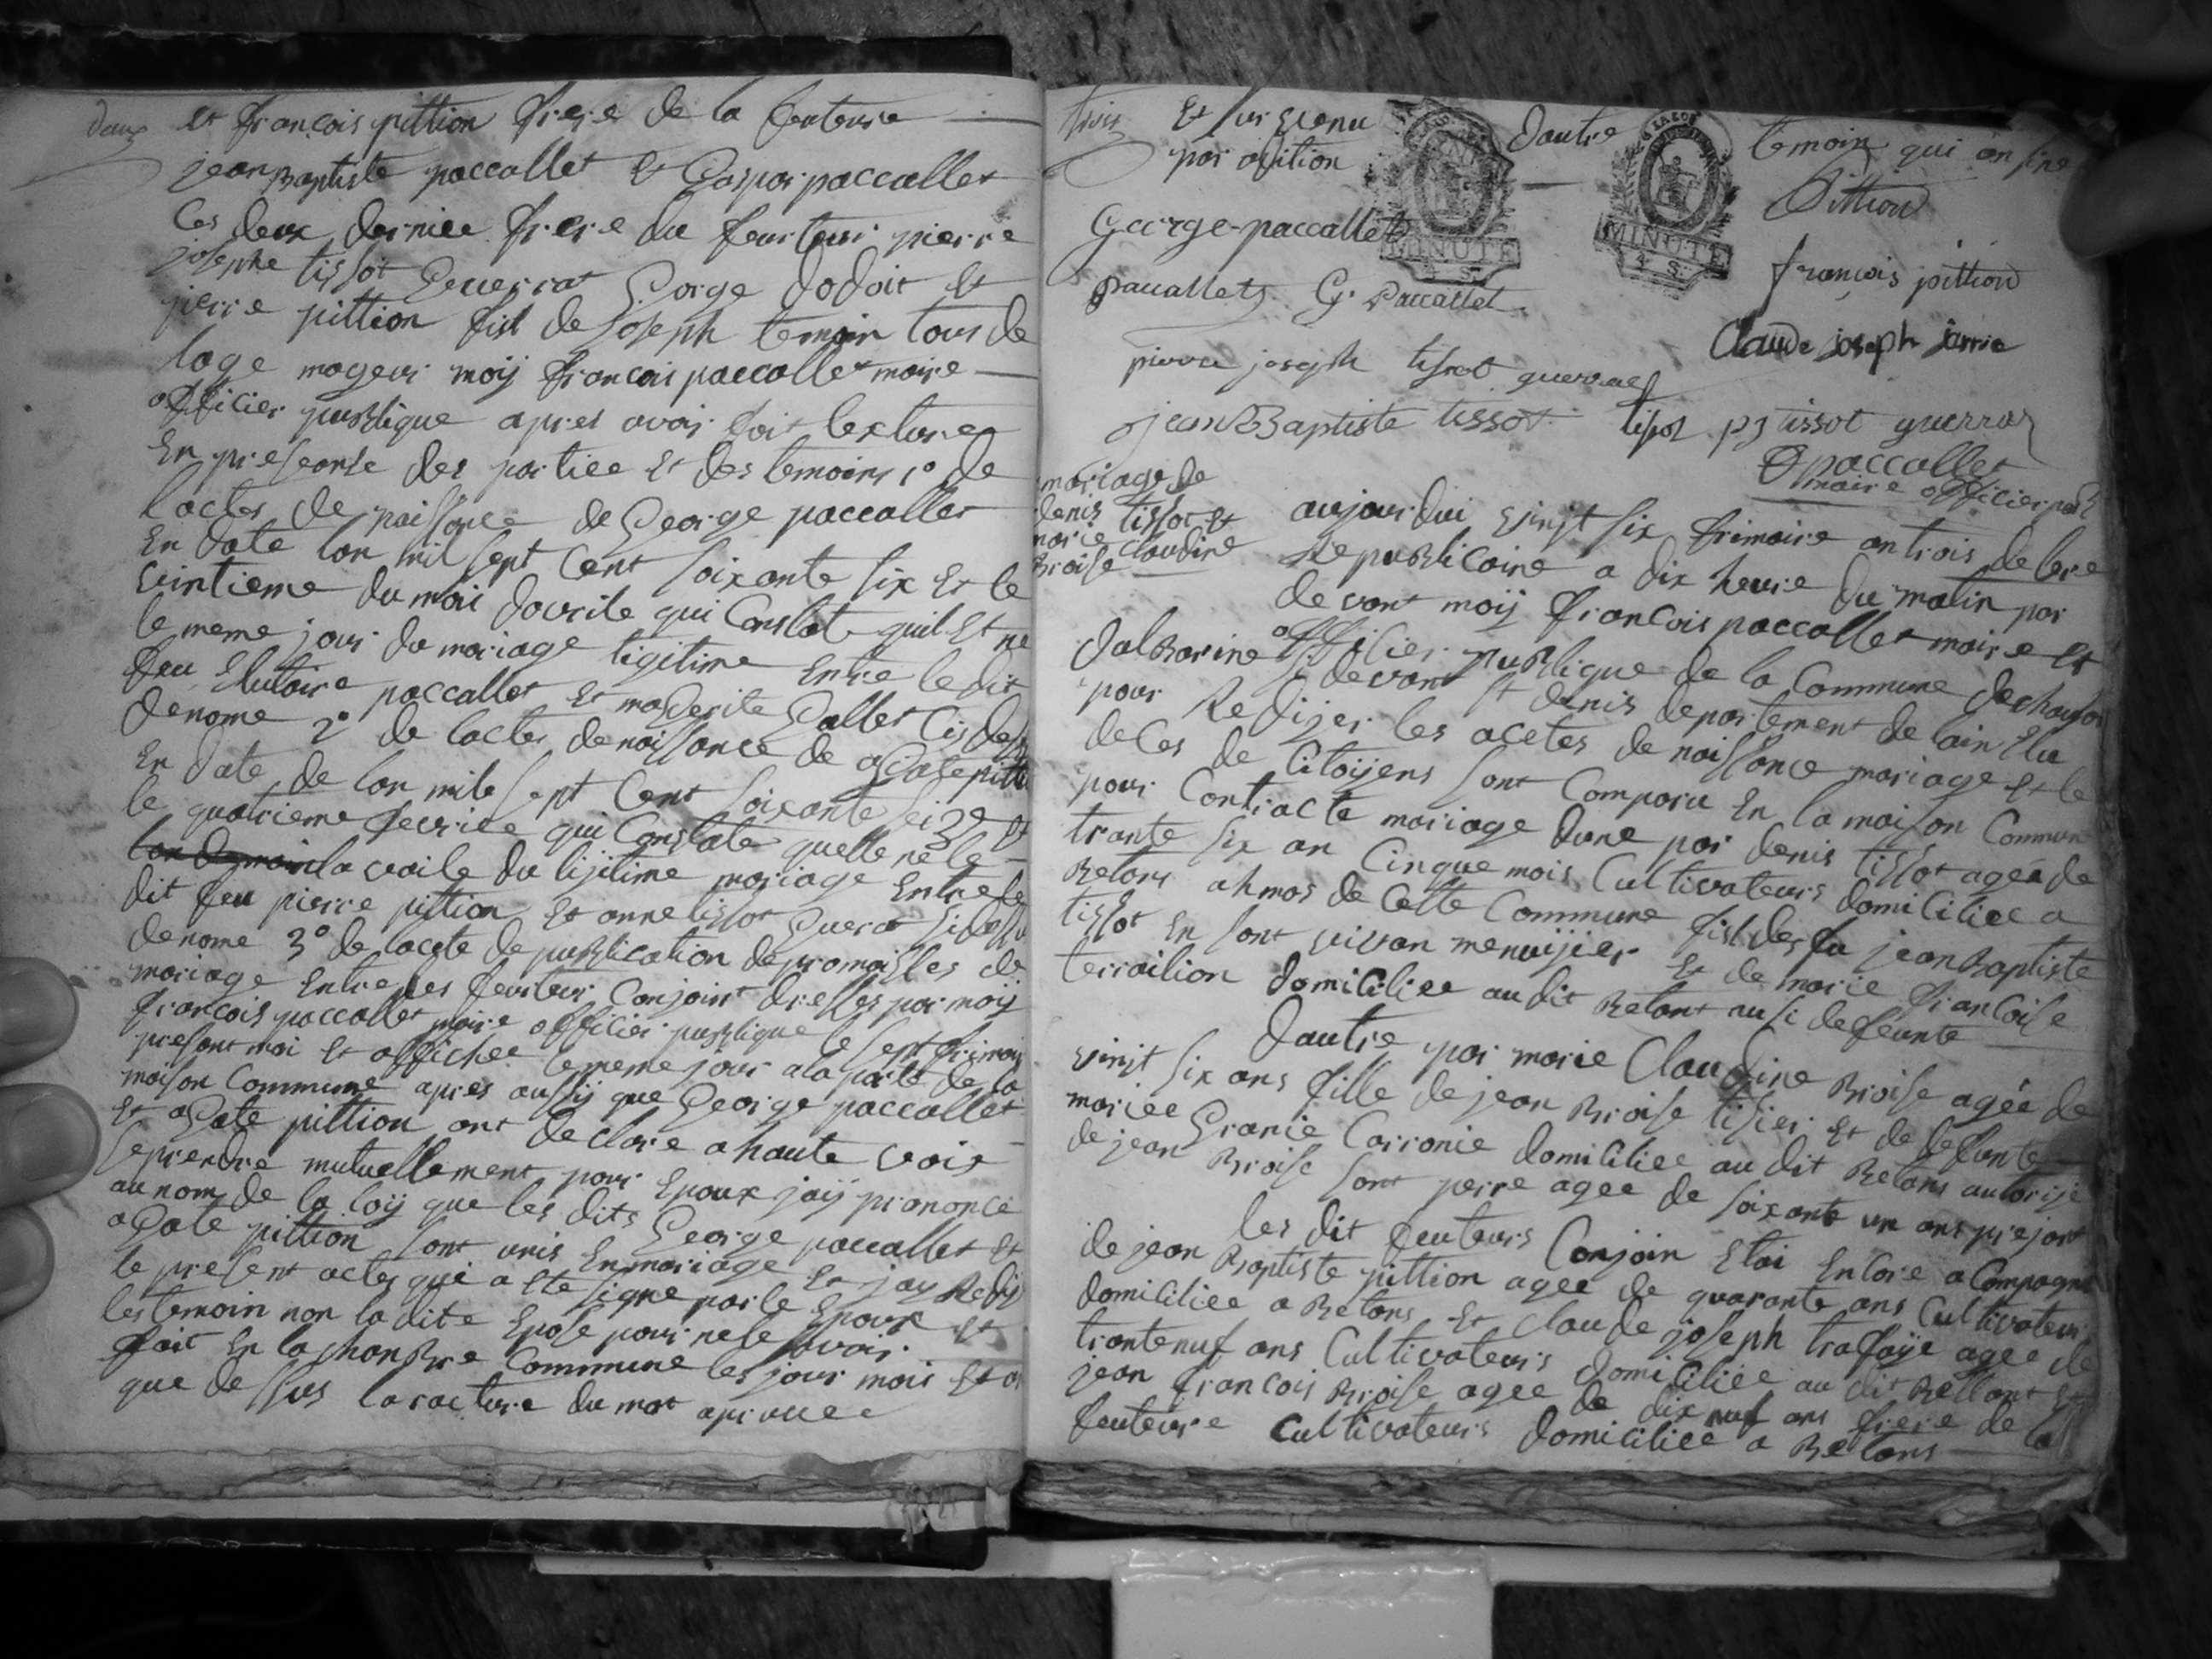 deux
et francois pittion frere de la feuteure
jean Baptiste paccallet et Gaspar paccallet
Ces deux derniee frere du feurteur pierre
josephe tissot Guerrat George Dodoit et
pierre pittion fist de joseph temoin tous de
lage mageur moij francois paccallet maire
officier publique apres avoir fait lexture
En presance des partiee et des temoins 1° de
lactes de naissance de George paccallet
En date lan mil sept Cent soixante six et le
vintieme du mois davrile qui Conslate quil et ne
le meme jour du mariage ligitime Entre le dit
feu paccallet et magerite Gallet Cy
denome 2° de lactes denaissance de agate pitti
En date de lan mile sept Cent soixante seize et
le quatrieme fevriee qui Conslate quelle ne le
la vaile du lijitime mariage Entre le
dit feu pierre pittion et anne tissot Guerat
denome 3° de lacete de publication de promaisses de
mariage Entre les feurteur Conjoint dresses par moij
francois paccallet maire officier publique le sept frimair
presant moi et affichee lememe jour ala porte de la
maison Commune apres aussij que George paccallet
et agate pittion ont declare ahaute voix
seprendre mutuellement pour Epoux jaij prononce
au nom de la loij que les dits George paccallet et
agate pittion sont unis En mariage et jay Redij
le present actes qui a Ete signe par le Epoux et
les temoin non la dite Epose pour ne le savoir
fait En la chanbre Commune les jour mois et a
que dessus laracture du mot aprouee
trois
Et sur venu dautre temoin qui on sine
par adition
Pittion
George paccallet
MINUTE
4 S.
MINUTE
4 S.
francois pittion
paccallet G. Paccallet
Claude joseph jarrie
pierre joseph tissot guerraz
jean Baptiste tissot tissot p j tissot guerraz
paccallet
maire officier pub
mariage de
denis tissot et
marie claudine
Broise
aujourdui vinjt six frimaire an trois de lere
Republicaine a dix heure du matin par
devant moij francois paccallet maire et
officier publique de la Commune de
dalbarine devant st denis departement de lain Elu
pour Redijer les acetes de naissance mariage et le
deces de Citoijens sont Comparu En la maison Commun
pour Contracte mariage dune par denis tissot ageá de
trante six an Cinque mois Cultivateurs domiciliee a
Betans ahmos de Cette Commune fist des fu jean Baptiste
tissot En sont vivan menuijier et de marie francoise
terrailion domiciliee au dit Betant ausi defeunte
dautre par marie Claudine Broise ageé de
vinjt six ans fille de jean Broise tisier et de defunte
mariee Granie Carronie domiciliee au dit Betans autorije
de jean Broise sont perre agee de soixante un ans prejant
les dit feuteurs Conjoin Etai Encore a Compagne
de jean Baptiste pittion agee de quarante ans Cultivateur
domiciliee a Betans et claude joseph trafaije agee de
trantenuf ans Cultivateurs domiciliee au dit Bettant et
jean francois Broise agee de dix nuf ans frere de la
feuteure Cultivateurs domiciliee a Betans